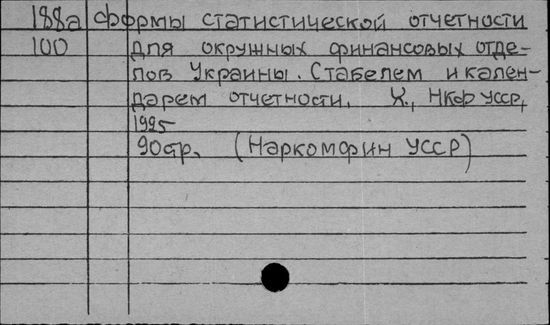 188а Формы статистической отчетности
100 для окружных финансовых отде-
лов Украины. Стабелем и кален-
дарем отчетности. Х., НКФ УССР,
1925
90стр. (Наркомфин УССР)